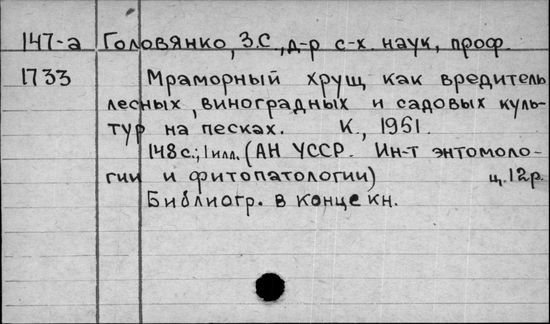 147-а Головянко, З.С., д-р с-х наук, проф
1733 Мраморный хрущ как вредитель
лесных, виноградных и садовых куль-
тур на песках. К., 1951.
148 с.; 1 илл. (АН УССР. Ин-т энтомоло-
гии и фитопатологии) ц. 12 р.
Библиогр. в конце кн.